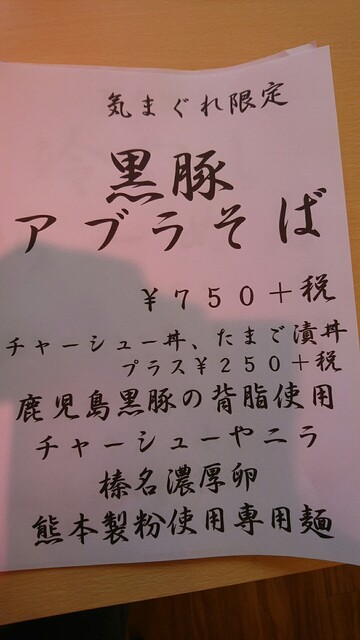 気まぐれ限定
黒豚
アブラそば
￥７５０＋税
チャーシュー丼、たまご漬丼
プラス￥２５０＋税
鹿児島黒豚の背脂使用
チャーシューやニラ
榛名濃厚卵
熊本製粉使用専用麺